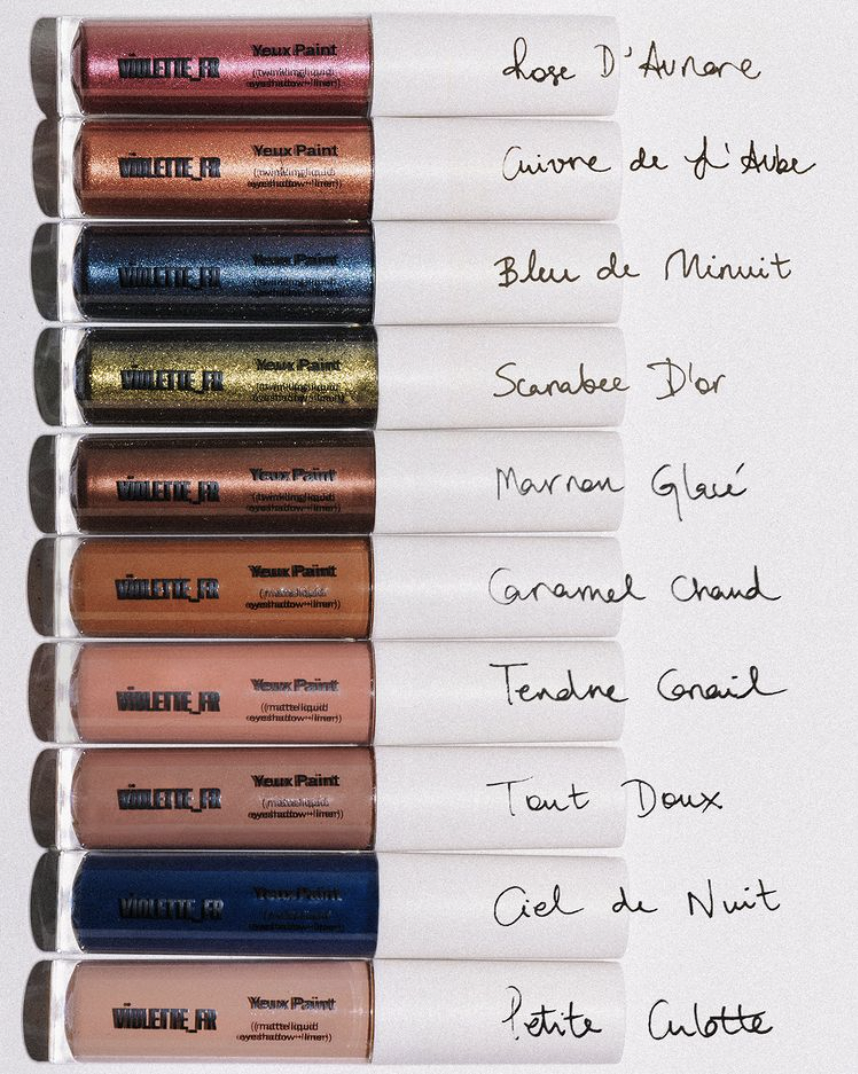 VIOLETTE_FR Yeux Paint Rose D'Aurore
((twinkling liquid
eyeshadow + liner))
VIOLETTE_FR Yeux Paint Cuivre de L'Aube
((twinkling liquid
eyeshadow + liner))
VIOLETTE_FR Yeux Paint Bleu de Minuit
((twinkling liquid
eyeshadow + liner))
VIOLETTE_FR Yeux Paint Scarabee D'or
((twinkling liquid
eyeshadow + liner))
VIOLETTE_FR Yeux Paint Marron Glacé
((twinkling liquid
eyeshadow + liner))
VIOLETTE_FR Yeux Paint Caramel Chaud
((matte liquid
eyeshadow + liner))
VIOLETTE_FR Yeux Paint Tendre Corail
((matte liquid
eyeshadow + liner))
VIOLETTE_FR Yeux Paint Tout Doux
((matte liquid
eyeshadow + liner))
VIOLETTE_FR Yeux Paint Ciel de Nuit
eyeshadow + liner))
VIOLETTE_FR Yeux Paint Petite Culotte
((matte liquid
eyeshadow + liner))